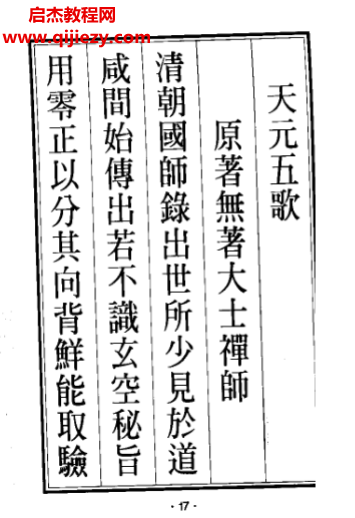 启杰教程网
www.qijiezy.com
天元五歌
原著無著大士禪師
清朝國師錄出世所少見於道
咸間始傳出若不識玄空秘旨
用零正以分其向背鮮能取驗
·17·